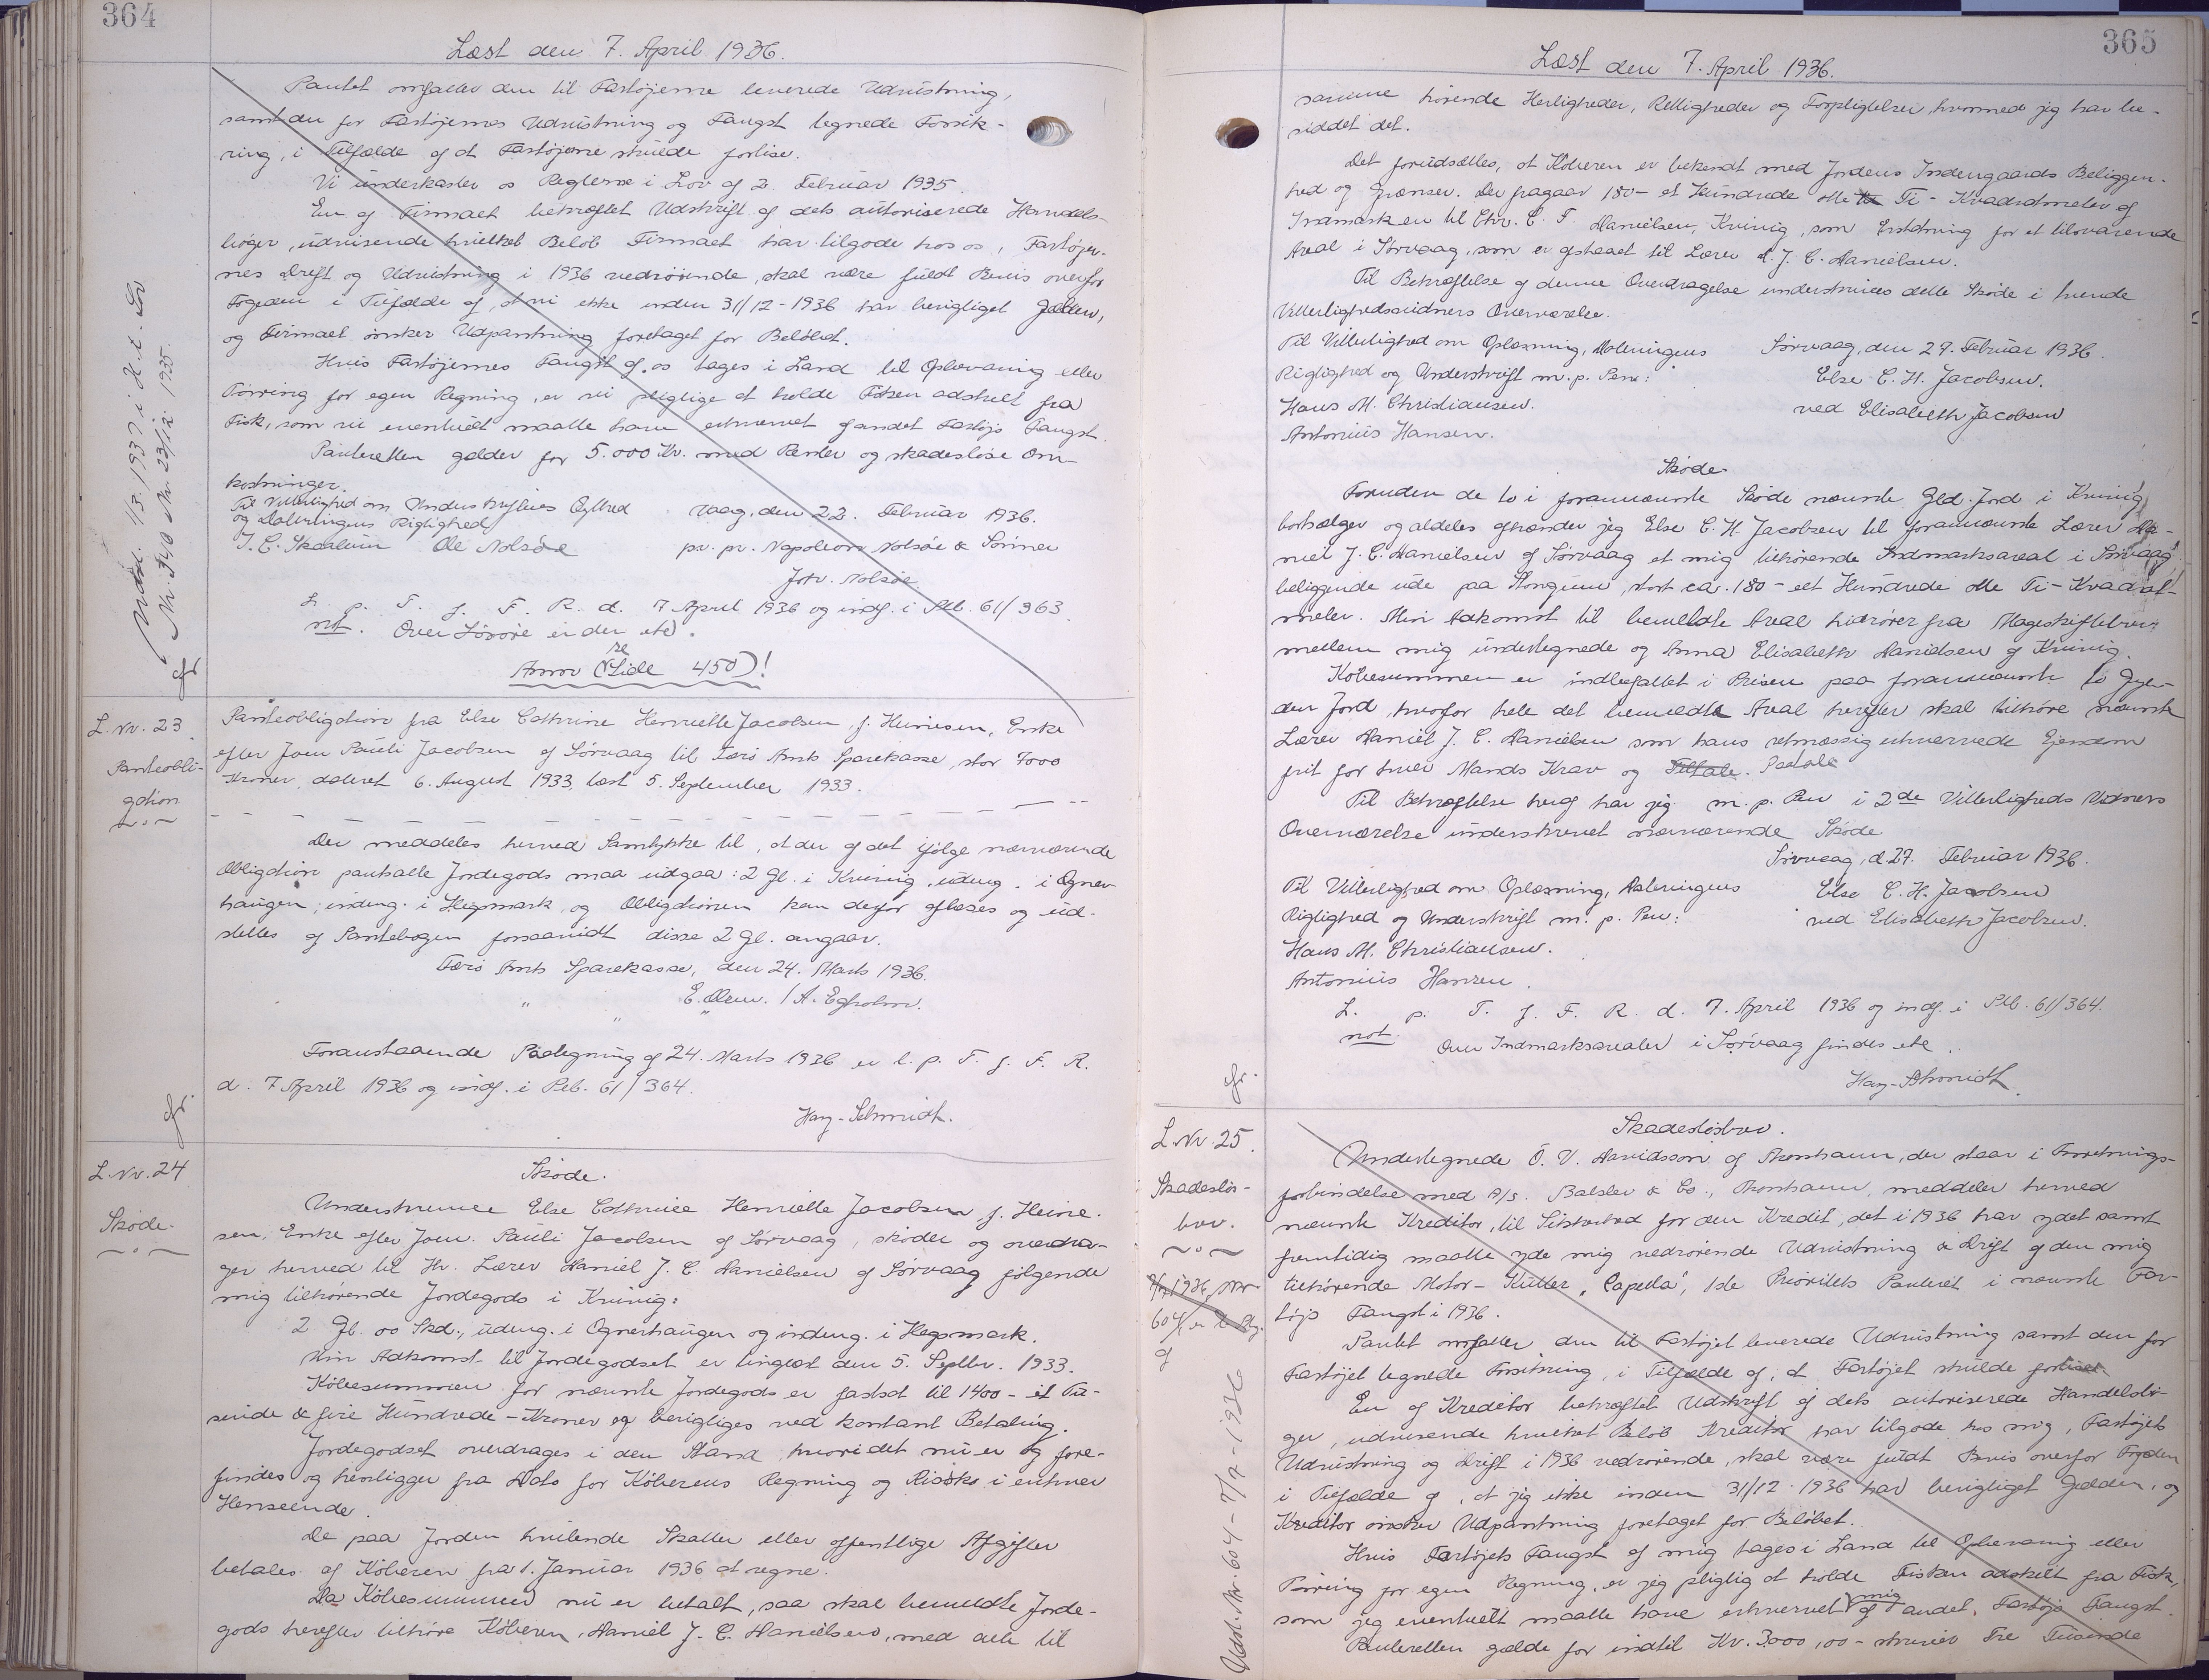 364
Læst den 7. April 1936.
Pantet omfatter den til Fartøjerne leverede Udrustning,
samt den for Fartøjernes Udrustning og Fangst tegnede Forsik-
ring, i Tilfælde af at Fartøjerne skulde forlise.
Vi underkaster os Reglerne i Lov af 2. Februar 1935.
En af Firmaet bekræftet Udskrift af dets autoriserede Handels-
bøger, udvisende hvilket Beløb Firmaet har tilgode hos os, Fartøjer-
nes Drift og Udrustning i 1936 vedrørende, skal være fuldt Bevis overfor
Fogeden i Tilfælde af, at vi ikke inden 31/12-1936 har berigtiget Gælden,
og Firmaet ønsker Udpantning foretaget for Beløbet.
Hvis Fartøjernes Fangst af os tages i Land til Opbevaring eller
Tørring for egen Regning, er vi pligtige at holde Fisken adskilt fra
Fisk, som vi eventuelt maatte have erhvervet af andet Fartøjs Fangst.
Panteretten gælder for 5.000 Kr. med Renter og skadesløse Om-
kostninger.
Til Vitterlighed om Underskriftens Ægthed
og Dateringens Rigtighed
J. C. Skaalum Ole Nolsøe
Vaag, den 22. Februar 1936.
pr. pr. Napoleon Nolsøe & Sønner
Joh. Nolsøe
L. p. T. f. F. R. d. 7 April 1936 og indf. i Ptb. 61/363.
not. Over Løsøre er der etc.
Anm (se Side 450)!
Nr. F40 Nr. 23/12 1935.
L. Nr. 23.
Panteobli-
gation
Panteobligation fra Else Cathrine Henriette Jacobsen, f. Heinesen, Enke
efter Joen Pauli Jacobsen af Sørvaag til Færø Amts Sparekasse, stor 7000
Kroner, dateret 6. August 1933, læst 5. September 1933.
Der meddeles herved Samtykke til, at der af det ifølge nærværende
Obligation pantsatte Jordegods maa udgaa: 2 Gl. i Kvivig, udmg. i Ognar-
haugen, indmg. i Hegsmark, og Obligationen kan derfor aflæses og ud-
slettes af Pantebogen forsaavidt disse 2 Gl. angaar.
Færø Amts Sparekasse, den 24. Marts 1936.
E. Olem. / A. Egholm.
Foranstaaende Paategning af 24. Marts 1936 er l. p. T. f. F. R.
d. 7 April 1936 og indf. i Ptb. 61/364.
Hay-Schmidt.
L. Nr. 24
Skøde.
Skøde.
Underskrevne Else Cathrine Henriette Jacobsen, f. Heine-
sen, Enke efter Joen Pauli Jacobsen af Sørvaag, skøder og overdra-
ger herved til Hr. Lærer Daniel J. C. Danielsen af Sørvaag følgende
mig tilhørende Jordegods i Kvivig:
2 Gl. oo Skd., udmg. i Ognerhaugen og indmg. i Hegsmark.
Min Adkomst til Jordegodset er tinglæst den 5. Septbr. 1933.
Købesummen for nævnte Jordegods er fastsat til 1400 - et Tu-
sinde & fire Hundrede - Kroner og berigtiges ved kontant Betaling.
Jordegodset overdrages i den Stand hvori det nu er og fore-
findes og henligger fra Dato for Køberens Regning og Risiko i enhver
Henseende.
De paa Jorden hvilende Skatter eller offentlige Afgifter
betales af Køberen fra 1. Januar 1936 at regne.
Da Købesummen nu er betalt, saa skal bemeldte Jorde-
gods herefter tilhøre Køberen, Daniel J. C. Danielsen, med alle til
365
Læst den 7. April 1936.
samme hørende Herligheder, Rettigheder og Forpligtelser, hvormed jeg har be-
siddet det.
Det forudsættes, at Køberen er bekendt med Jordens Indengaards Beliggen-
hed og Grænser. Der fragaar 180 - et Hundrede otte Ti - Kvadratmeter af
Indmarken til Chr. C. F. Danielsen, Kvivig, som Erstatning for et tilsvarende
Areal i Sørvaag, som er afstaaet til Lærer D. J. C. Danielsen.
Til Bekræftelse af denne Overdragelse underskrives dette Skøde i tvende
Vitterlighedsvidners Overværelse.
Til Vitterlighed om Oplæsning, Dateringens
Rigtighed og Underskrift m. p. Pen:
Hans M. Christiansen.
Antonius Hansen.
Sørvaag, den 29. Februar 1936.
Else C. H. Jacobsen.
ved Elisabeth Jacobsen
Skøde.
Foruden de to i forannævnte Skøde nævnte Gld. Jord i Kvivig
bortsælger og aldeles afhænder jeg Else C. H. Jacobsen til forannævnte Lærer Da-
niel J. C. Danielsen af Sørvaag et mig tilhørende Indmarksareal i Sørvaag
beliggende ude paa stort ca. 180 - eet Hundrede otte Ti - Kvadrat-
meter. Min Adkomst til bemeldte Areal hidrører fra Mageskiftebrev
mellem mig undertegnede og Anna Elisabeth Danielsen af Kvivig.
Købesummen er indbefattet i Prisen paa forannævnte to Gyl-
den Jord, hvorfor hele det bemeldte Areal herefter skal tilhøre nævnte
Lærer Daniel J. C. Danielsen som hans retmæssig erhvervede Ejendom
frit for hver Mands Krav og Tiltale. Paatale
Til Bekræftelse heraf har jeg m. p. Pen i 2de Vitterligheds Vidners
Overværelse underskrevet nærværende Skøde
Sørvaag, d. 29. Februar 1936.
Til Vitterlighed om Oplæsning, Dateringens
Rigtighed og Underskrift m. p. Pen:
Hans M. Christiansen.
Antonius Hansen.
Else C. H. Jacobsen
ved Elisabeth Jacobsen.
L. p. T. f. F. R. d. 7. April 1936 og indf. i Ptb. 61/364.
not. Over Indmarksarealer i Sørvaag findes etc.
Hay-Schmidt.
L. Nr. 25.
Skadesløs-
brev.
Udsl. Nr. 604 - 7/7 - 1936
Skadesløsbrev.
Undertegnede O. V. Davidsson af Thorshavn, der staar i Forretnings-
forbindelse med A/S. Balslev & Co., Thorshavn, meddeler herved
nævnte Kreditor, til Sikkerhed for den Kredit, det i 1936 har ydet samt
fremtidig maatte yde mig vedrørende Udrustning & Drift af den mig
tilhørende Motor-Kutter "Capella", 1ste Prioritets Panteret i nævnte Far-
tøjs Fangst i 1936.
Pantet omfatter den til Fartøjet leverede Udrustning samt den for
Fartøjet tegnede Forsikring, i Tilfælde af, at Fartøjet skulde forlise.
En af Kreditor bekræftet Udskrift af dets autoriserede Handelsbø-
ger, udvisende hvilket Beløb Kreditor har tilgode hos mig, Fartøjets
Udrustning og Drift i 1936 vedrørende, skal være fuldt Bevis overfor Fogden
i Tilfælde af, at jeg ikke inden 31/12 1936 har berigtiget Gælden, og
Kreditor ønsker Udpantning foretaget for Beløbet.
Hvis Fartøjets Fangst af mig tages i Land til Opbevaring eller
Tørring for egen Regning, er jeg pligtig at holde Fisken adskilt fra Fisk,
som jeg eventuelt maatte have erhvervet mig af andet Fartøjs Fangst.
Panteretten gælde for indtil Kr. 3000,00 - skriver Tre Tusinde